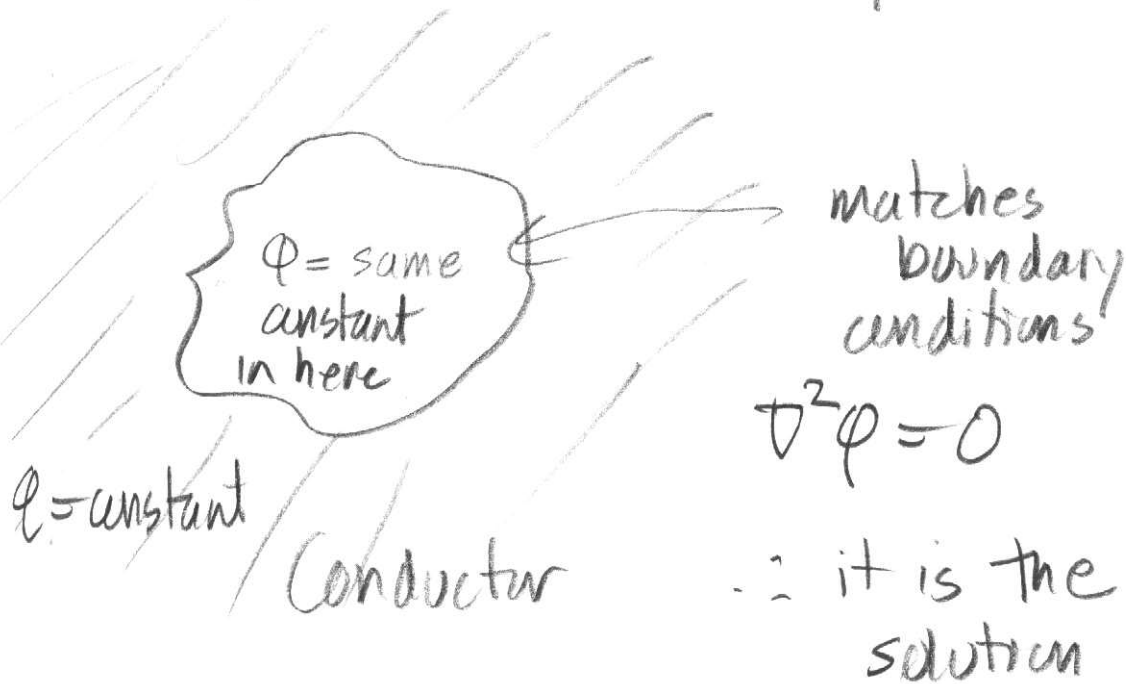 φ = same
constant
in here
matches
boundary
conditions
∇²φ = 0
φ = constant
Conductor
∴ it is the
solution